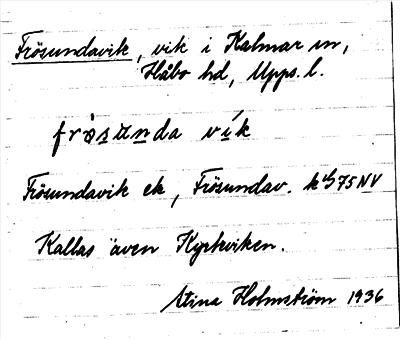 Frösundavik, vik i Kalmar sn,
Håbo hd, Upps. l.
frösùnda vík
Frösundavik ek, Frösundav. kbl 75 NV
Kallas även Kyrkviken.
Stina Holmström 1936